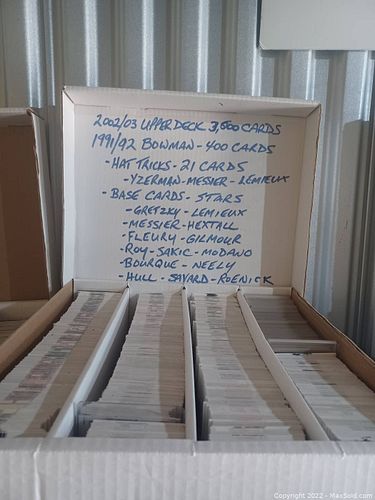 2002/03 UPPER DECK 3,500 CARDS
1991/92 BOWMAN - 400 CARDS
- HAT TRICKS - 21 CARDS
- YZERMAN - MESSIER - LEMIEUX
- BASE CARDS - STARS
- GRETZKY - LEMIEUX
- MESSIER - HEXTALL
- FLEURY - GILMOUR
- ROY - SAKIC - MODANO
- BOURQUE - NEELY
- HULL - SAVARD - ROENICK
Copyright 2022 - MaxSold.com